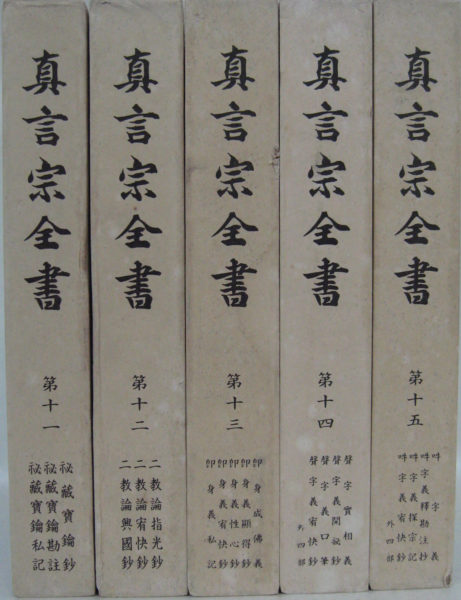 真言宗全書
第十一
祕藏寶鑰鈔
祕藏寶鑰勘註
祕藏寶鑰私記
真言宗全書
第十二
二教論指光鈔
二教論宥快鈔
二教論興國鈔
真言宗全書
第十三
卽身成佛義
卽身義顯得鈔
卽身義性心鈔
卽身義宥快鈔
卽身義私記
真言宗全書
第十四
聲字實相義
聲字義開祕鈔
聲字義口筆
聲字義宥快鈔
外四部
真言宗全書
第十五
吽字義
吽字義釋勘注抄
吽字義探宗記
吽字義宥快鈔
外四部